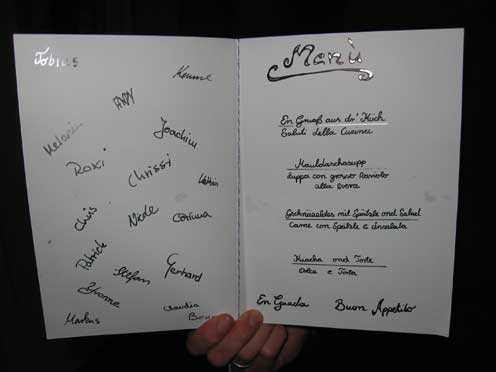 Tobias
Andy
Joachim
Melanie
Roxi
Chrissi
Chris
Nicole
Corinna
Patrick
Stefan
Gerhard
Yvonne
Claudia
Markus
Menù
En Grueß aus dr' Kuch
Saluti della Cucina
Mauldaschasupp
Zuppa con grosso Raviolo
alla Sveva
mit Spätzle ond Salad
Carne con Spätzle e Insalata
Kuacha ond Torte
Dolce e Torta
En Guada Buon Appetito